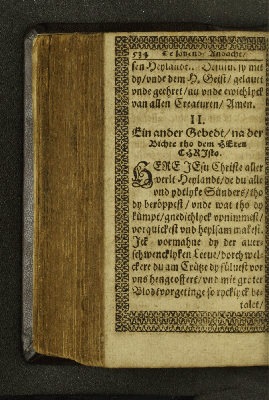 534
sen Heylandt. Demm sy mit
dy/vnde dem H. Geist/gelauet
vnde geehret/nu vnde ewichlyck
van allen Creaturen/Amen.
II.
Ein ander Gebedt/na der
Bichte tho dem HEren
CHRJsto.
HERE JEsu Christe aller
werlt Heylandt/de du alle
vnd ydtlyke Sünders/tho
dy beröppest/vnde wat tho dy
kümpt/gnedichlyck vpnimmest/
vorquickest vnd heylsam makest.
Jck vormahne dy der auer-
schwencklyken Leeue/dorch wel-
ckere du am Crütze dy süluest vor
vns hengeoffert/vnd mit groter
Blodtvorgetinge so rycklyck be-
talet/